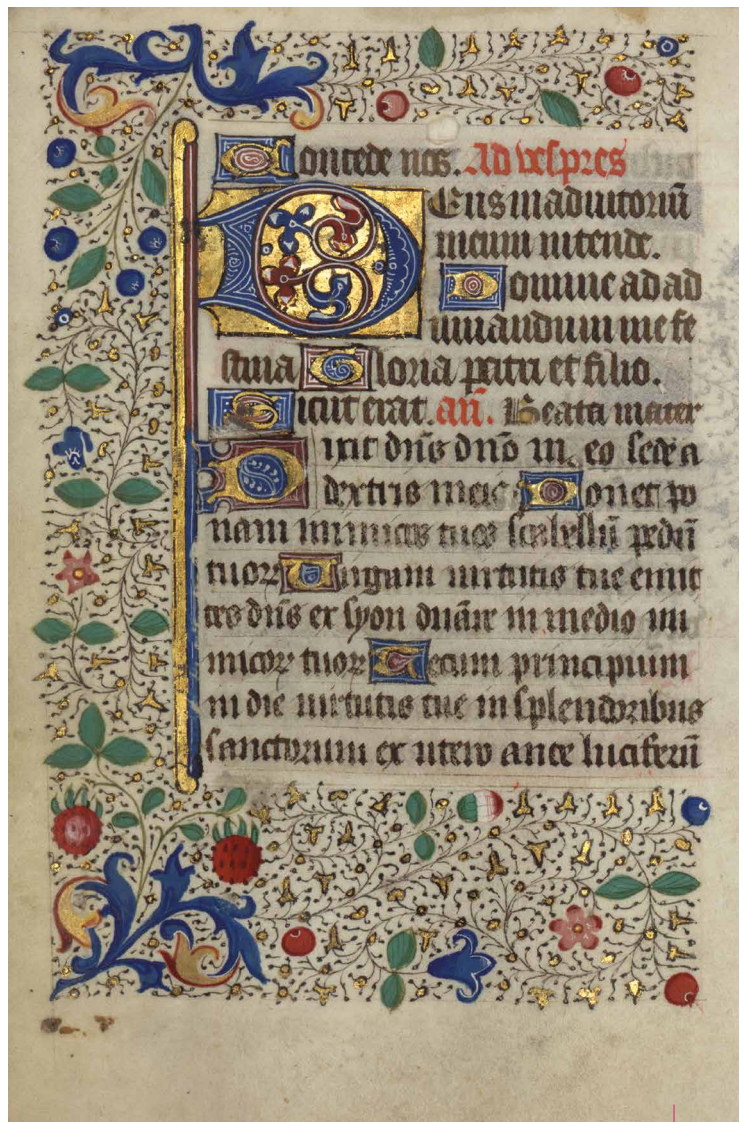 Concede nos. Ad vespres
Deus in adiutoriū
meum intende.
Domine ad ad
iuuandum me fe
stina Gloria patri et filio.
Sicut erat. añ. Beata mater
Dixit dn̄s dn̄o m̄eo sede a
dextris meis Donec po
nam inimicos tuos scabellū pedū
tuorꝝ Uirgam uirtutis tue emit
tet dn̄s ex syon dn̄are in medio ini
micorꝝ tuorꝝ Tecum principium
in die uirtutis tue in splendoribus
sanctorum ex utero ante luciferū